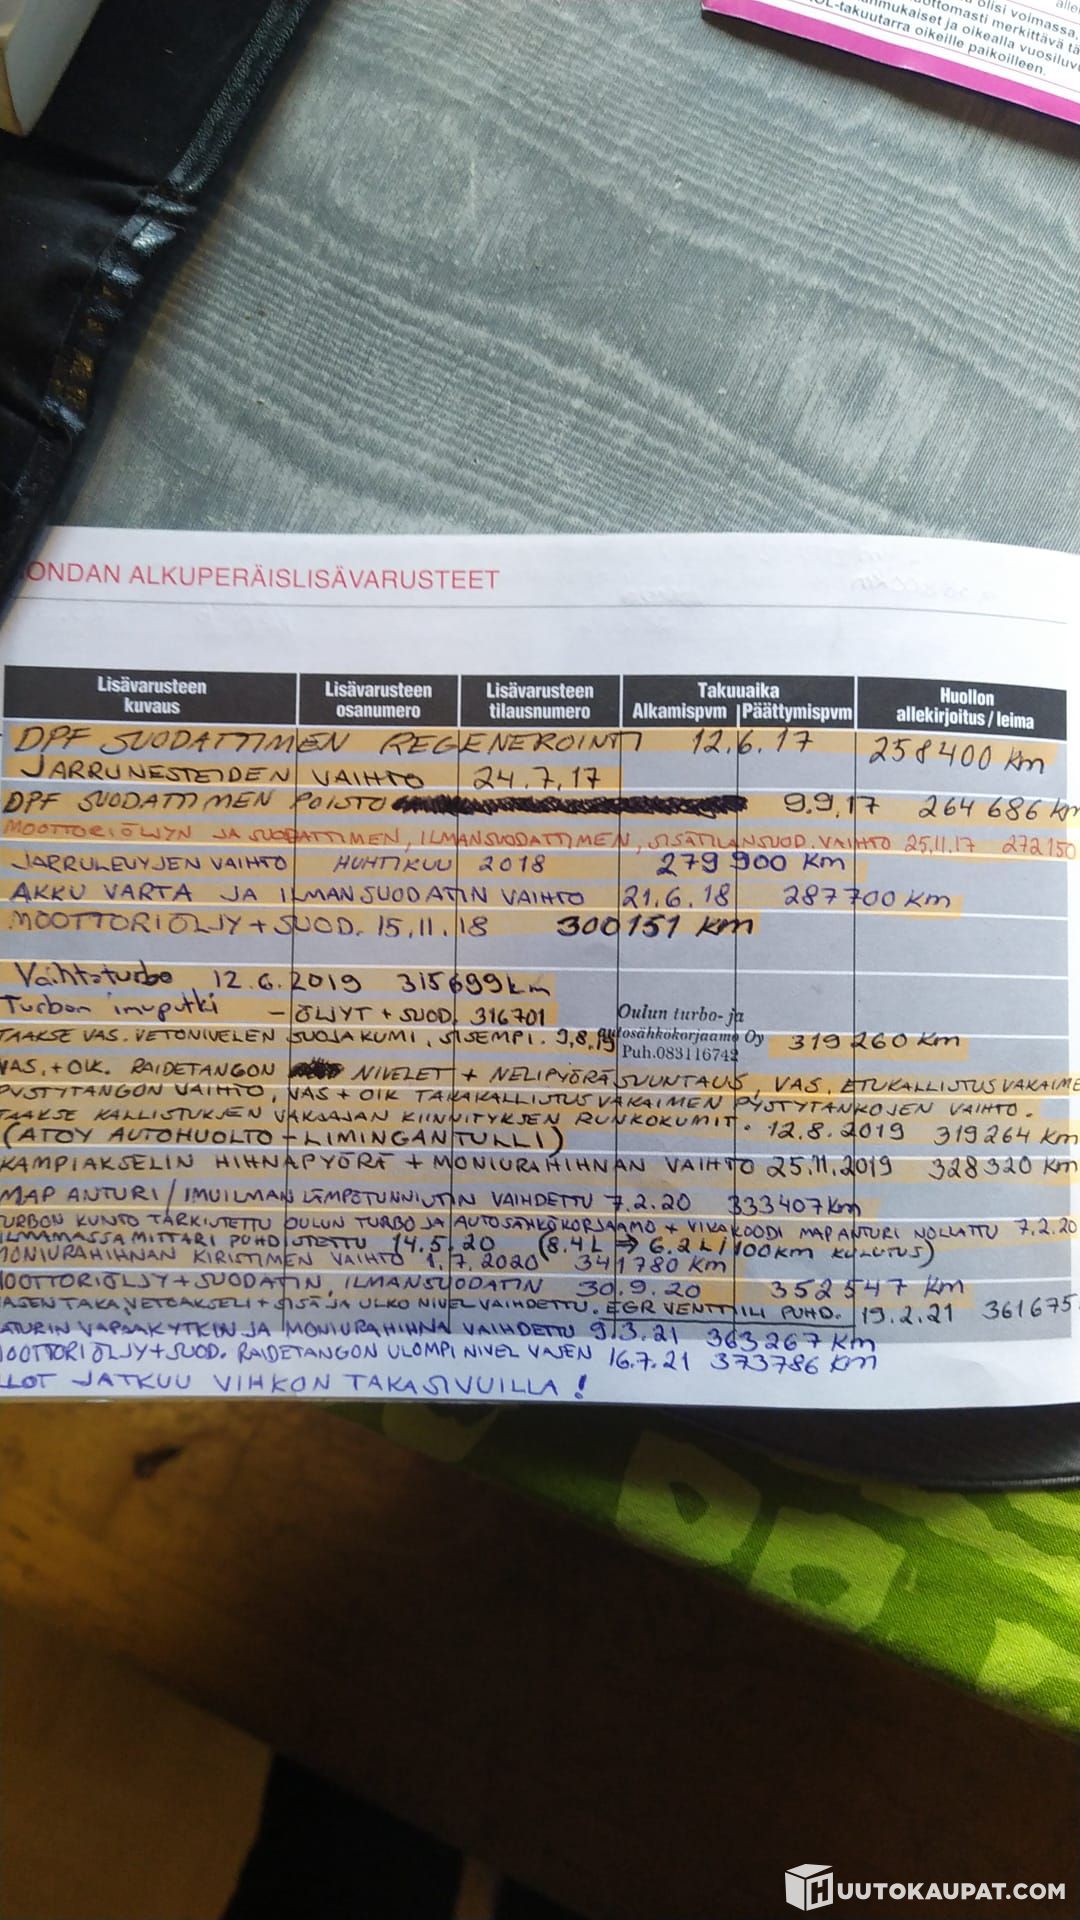 olisi voimassa,
ottomasti merkittävä tä
nmukaiset ja oikealla vuosiluvu
OL-takuutarra oikeille paikoilleen.
ONDAN ALKUPERÄISLISÄVARUSTEET
Lisävarusteen kuvaus Lisävarusteen osanumero Lisävarusteen tilausnumero Takuuaika Alkamispvm Päättymispvm Huollon allekirjoitus / leima
DPF SUODATTIMEN REGENEROINTI 12.6.17 258400 km
JARRUNESTEIDEN VAIHTO 24.7.17
DPF SUODATTIMEN POISTO 9.9.17 264 686 km
MOOTTORIÖLJYN JA SUODATTIMEN, ILMANSUODATTIMEN, SISÄTILANSUOD. VAIHTO 25.11.17 272150
JARRULEVYJEN VAIHTO HUHTIKUU 2018 279 900 Km
AKKU VARTA JA ILMANSUODATIN VAIHTO 21.6.18 287700 Km
MOOTTORIÖLJY + SUOD. 15.11.18 300151 km
Vaihtoturbo 12.6.2019 315699km
Turbon imuputki – ÖLJYT + SUOD. 316701
Oulun turbo- ja
autosähkökorjaamo Oy
Puh.083116742
TAAKSE VAS. VETONIVELEN SUOJAKUMI, SISEMPI. 9.8.19 319260 Km
VAS. + OIK. RAIDETANGON NIVELET + NELIPYÖRÄSUUNTAUS, VAS. ETUKALLISTUSVAKAIME
PYSTYTANGON VAIHTO, VAS + OIK TAKAKALLISTUSVAKAIMEN PYSTYTANKOJEN VAIHTO.
TAAKSE KALLISTUKSEN VAKAAJAN KIINNITYKSEN RUNKOKUMIT. 12.8.2019 319264 Km
(ATOY AUTOHUOLTO – LIMINGANTULLI)
KAMPIAKSELIN HIHNAPYÖRÄ + MONIURAHIHNAN VAIHTO 25.11.2019 328320 Km
MAP ANTURI / IMUILMAN LÄMPÖTUNNISTIN VAIHDETTU 7.2.20 333407 Km
URBON KUNTO TARKISTETTU OULUN TURBO JA AUTOSÄHKÖKORJAAMO + VIKAKOODI MAP ANTURI NOLLATTU 7.2.20
ILMAMASSAMITTARI PUHDISTETTU 14.5.20 (8.4 L ⇒ 6.2 L / 100km KULUTUS)
MONIURAHIHNAN KIRISTIMEN VAIHTO 1.7.2020 341780 Km
OOTTORIÖLJY + SUODATIN, ILMANSUODATIN 30.9.20 352547 Km
ASEN TAKA, VETOAKSELI + SISÄ JA ULKO NIVEL VAIHDETTU. EGR VENTTIILI PUHD. 19.2.21 361675
ATURIN VAPAAKYTKIN JA MONIURAHIHNA VAIHDETTU 9.3.21 363267 Km
OOTTORIÖLJY + SUOD. RAIDETANGON ULOMPI NIVEL VASEN 16.7.21 373786 Km
LLOT JATKUU VIHKON TAKASIVUILLA!
HUUTOKAUPAT.COM